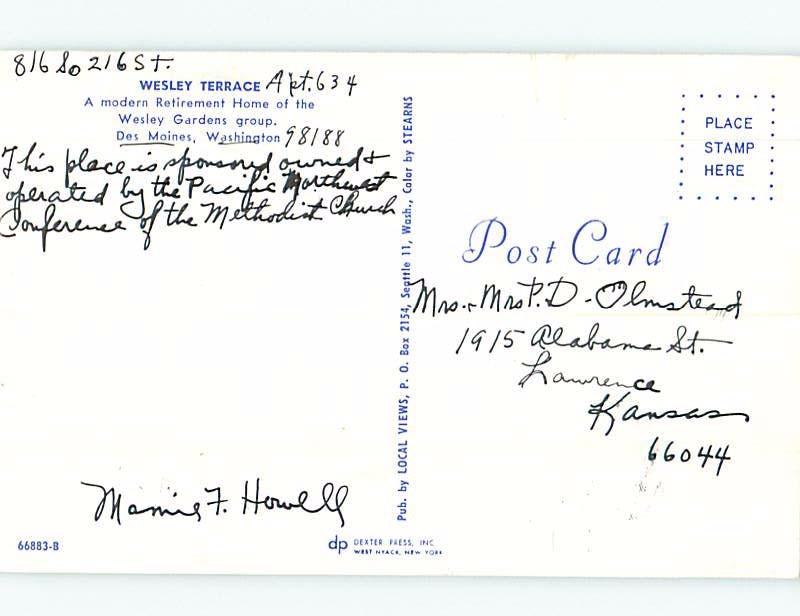 816 So 216 St.
WESLEY TERRACE Apt. 634
A modern Retirement Home of the
Wesley Gardens group.
Des Moines, Washington 98188
This place is sponsored owned +
operated by the Pacific Northwest
Conference of the Methodist Church
Mamie F. Howell
66883-B
Pub. by LOCAL VIEWS, P. O. Box 2154, Seattle 11, Wash., Color by STEARNS
dp DEXTER PRESS, INC.
WEST NYACK, NEW YORK
PLACE
STAMP
HERE
Post Card
Mrs. + Mrs P. D. Olmstead
1915 Alabama St.
Lawrence
Kansas
66044